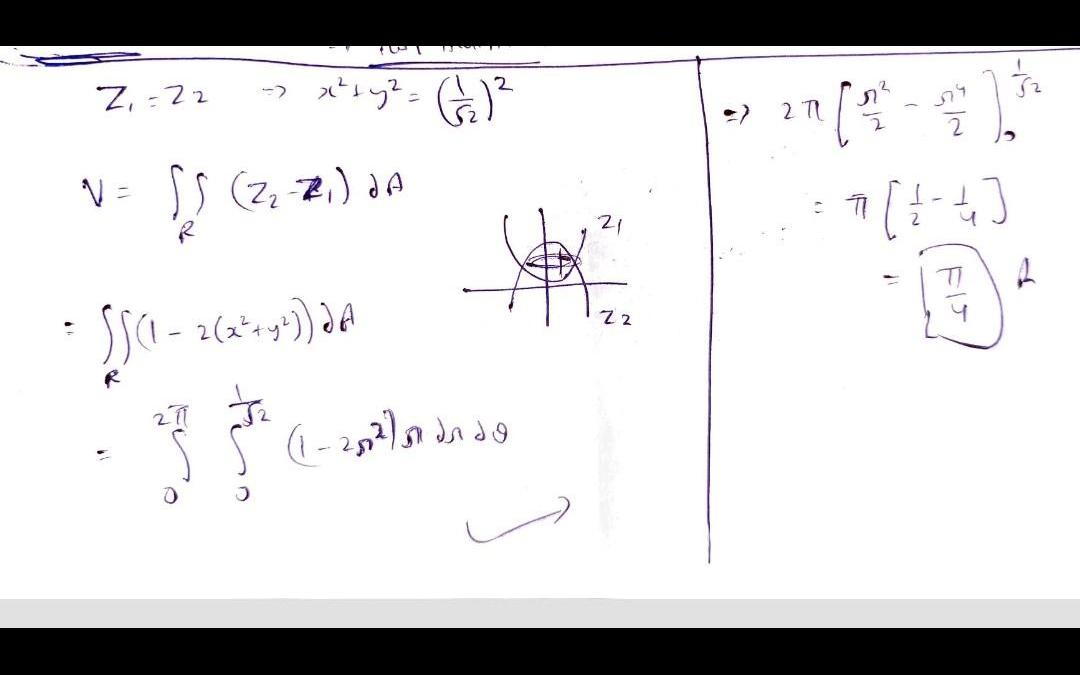 Z₁ = Z₂ => x²+y² = (1/√2)²
V = ∬_R (Z₂ - Z₁) dA
Z₁
Z₂
= ∬_R (1 - 2(x²+y²)) dA
= ∫₀^2π ∫₀^1/√2 (1 - 2r²) r dr dθ
=> 2π [r²/2 - r⁴/2]₀^1/√2
= π [1/2 - 1/4]
= π/4